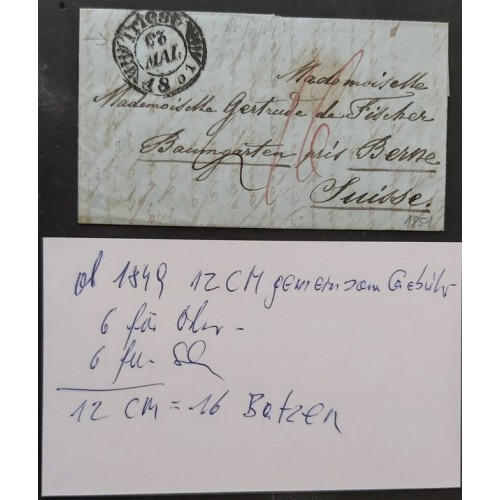 TRIEST
23
MAI.
Mademoiselle
Mademoiselle Gertrude de Fischer
Baumgarten près Berne
Suisse.
16
1851
ab 1849 12 CM gemeinsam Gebühr
6 für
6 für
12 CM = 16 Batzen